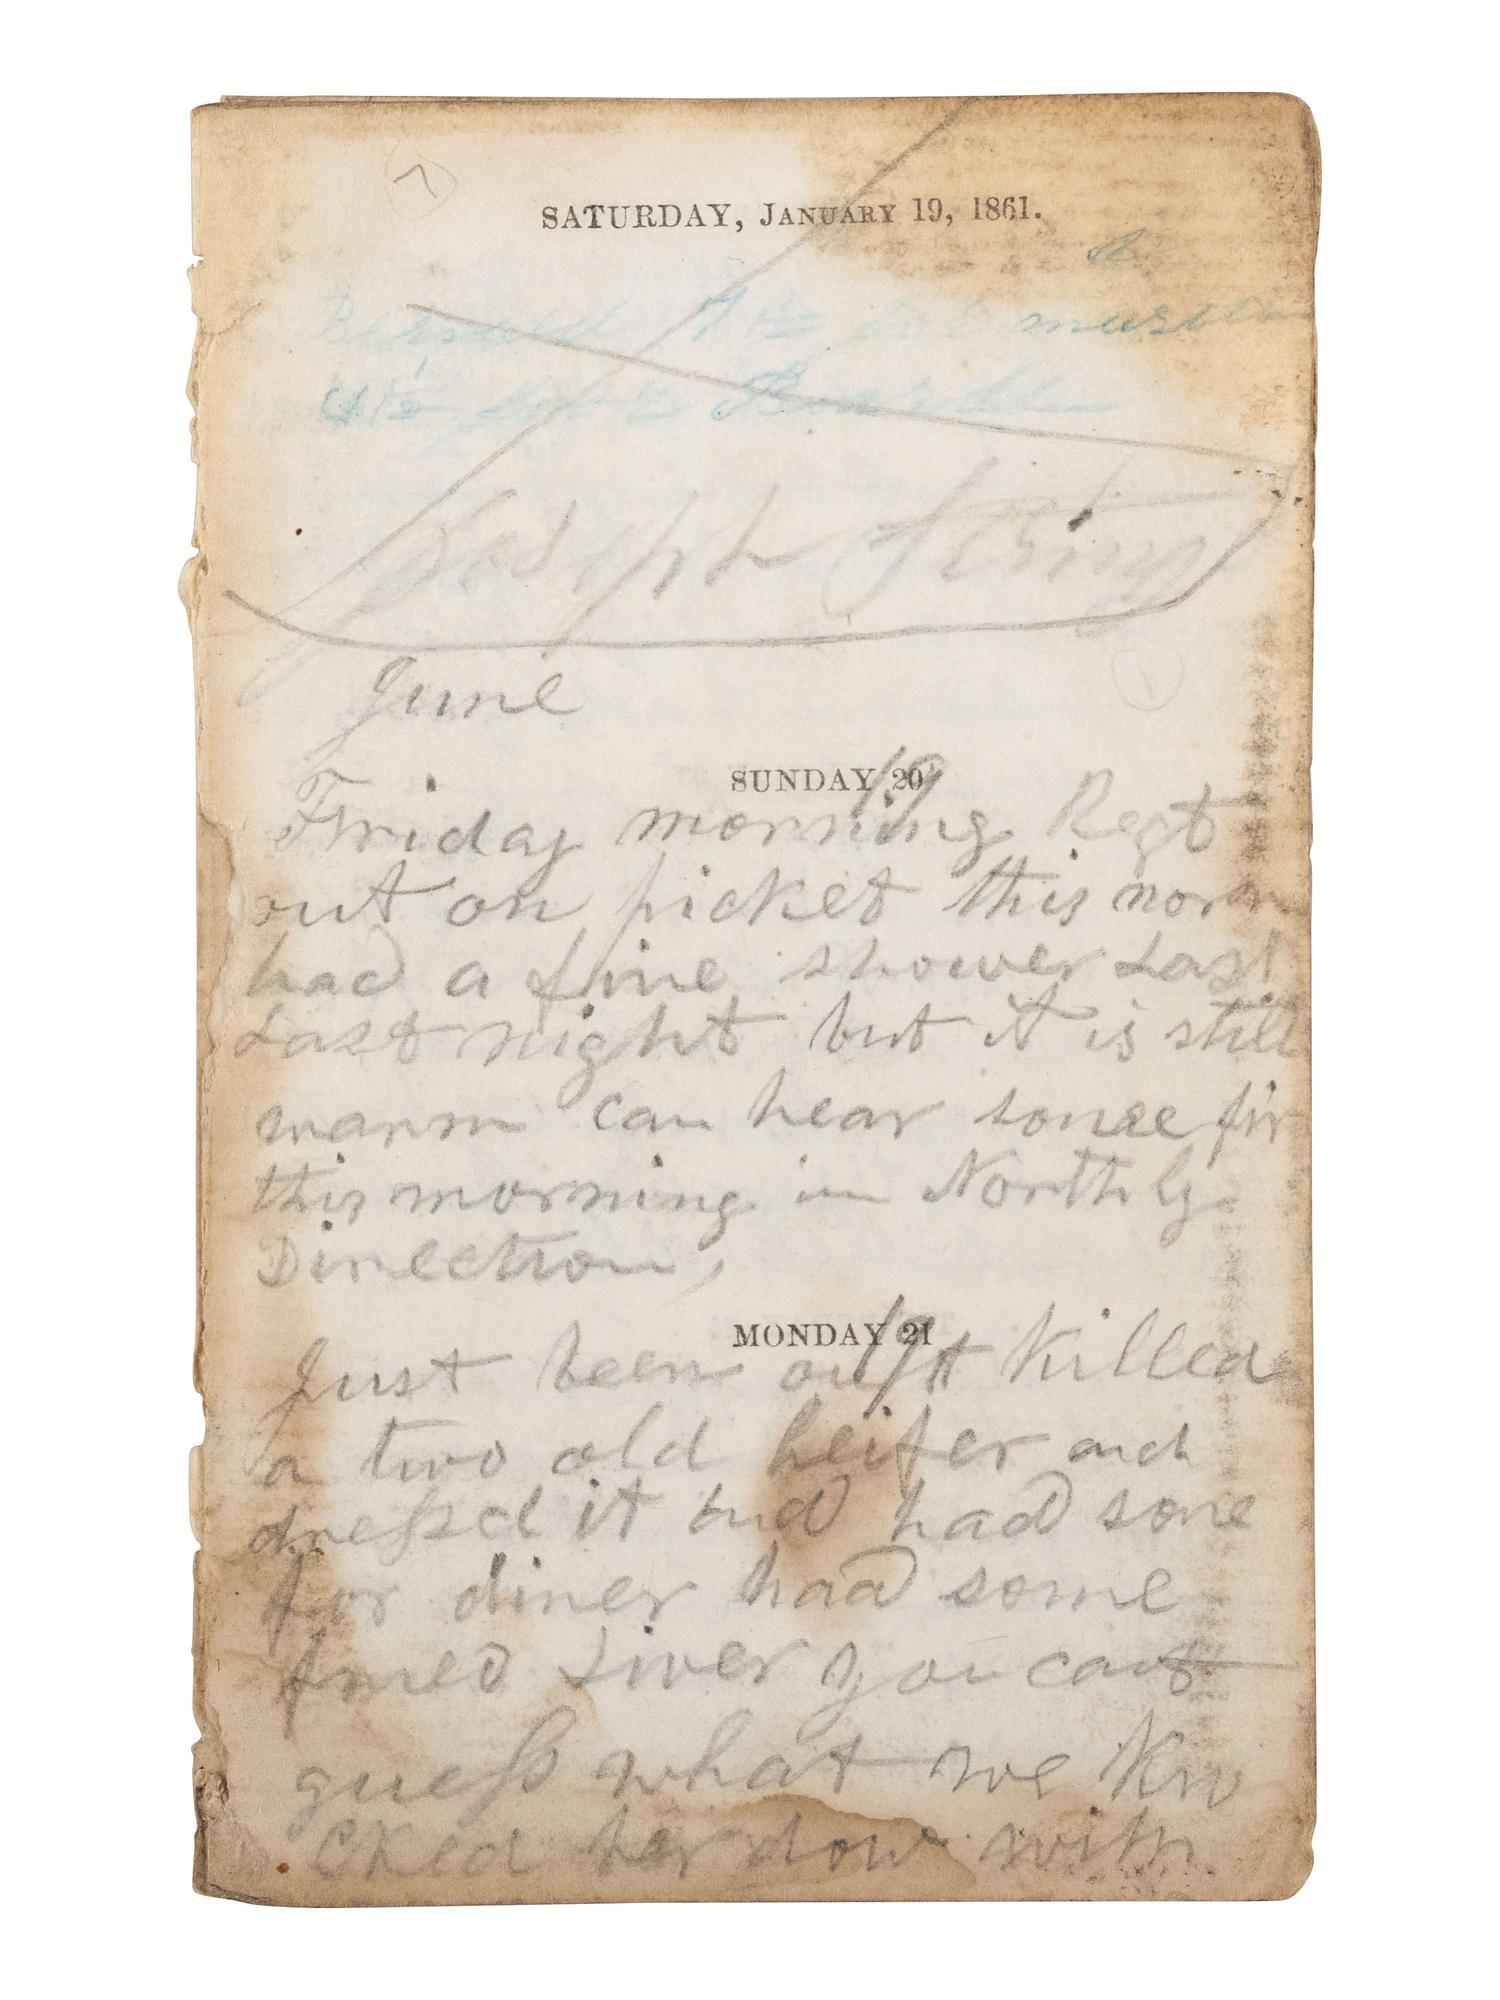 7
SATURDAY, JANUARY 19, 1861.
7 1/2 mutton
4 1/2
Joseph
June
SUNDAY 20
19
Friday morning Regt
out on picket this morn
had a fine shower Last
Last night but it is still
warm can hear some fir
this morning in Northly
Direction,
MONDAY 21
19
Just been out Killed
a two old heifer and
dressed it and had some
for diner had some
fried Liver you cant
guess what we Kno
cked her dow with